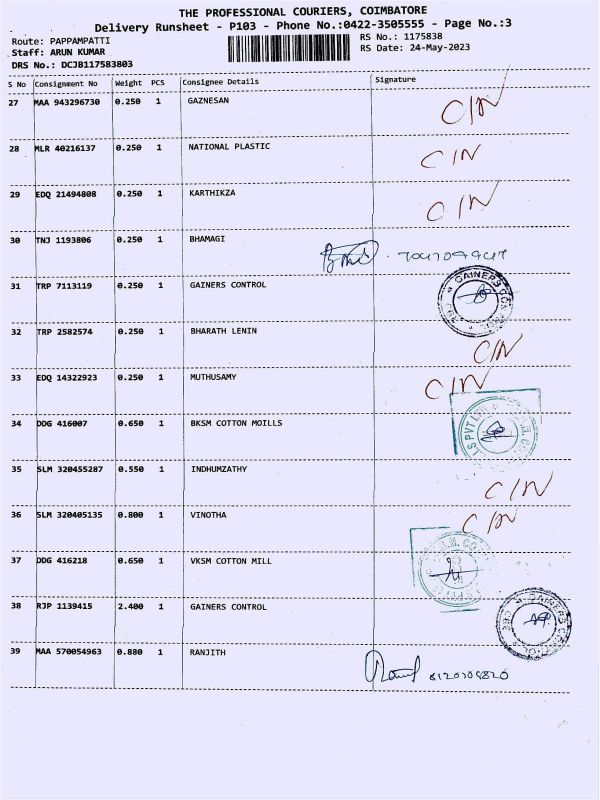 THE PROFESSIONAL COURIERS, COIMBATORE
Delivery Runsheet - P103 - Phone No.:0422-3505555 - Page No.:3
Route: PAPPAMPATTI
RS No.: 1175838
Staff: ARUN KUMAR
RS Date: 24-May-2023
DRS No.: DCJB117583803
S No Consignment No Weight PCS Consignee Details Signature
27 MAA 943296730 0.250 1 GAZNESAN CIN
28 MLR 40216137 0.250 1 NATIONAL PLASTIC CIN
29 EDQ 21494808 0.250 1 KARTHIKZA CIN
30 TNJ 1193806 0.250 1 BHAMAGI
31 TRP 7113119 0.250 1 GAINERS CONTROL GAINERS
32 TRP 2582574 0.250 1 BHARATH LENIN CIN
33 EDQ 14322923 0.250 1 MUTHUSAMY CIN
34 DDG 416007 0.650 1 BKSM COTTON MOILLS
35 SLM 320455287 0.550 1 INDHUMZATHY CIN
36 SLM 320405135 0.800 1 VINOTHA CIN
37 DDG 416218 0.650 1 VKSM COTTON MILL
38 RJP 1139415 2.400 1 GAINERS CONTROL GAINERS
39 MAA 570054963 0.880 1 RANJITH